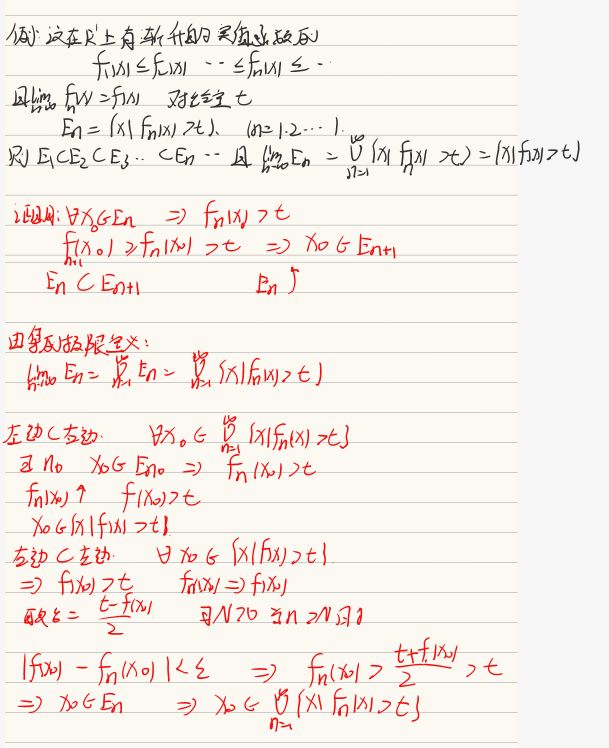 例: 设在R¹上有渐升的实值函数列
f₁(x) ≤ f₂(x) ⋯ ≤ fₙ(x) ≤ ⋯
且 lim_{n→∞} fₙ(x) = f(x) 对给定 t
Eₙ = {x | fₙ(x) > t}, (n = 1.2⋯).
则 E₁ ⊂ E₂ ⊂ E₃ ⋯ ⊂ Eₙ ⋯ 且 lim_{n→∞} Eₙ = ⋃_{n=1}^{∞} {x | fₙ(x) > t} = {x | f(x) > t}
证明: ∀x₀ ∈ Eₙ ⇒ fₙ(x₀) > t
fₙ₊₁(x₀) ≥ fₙ(x₀) > t ⇒ x₀ ∈ Eₙ₊₁
Eₙ ⊂ Eₙ₊₁ Eₙ ↑
由集列极限定义:
lim_{n→∞} Eₙ = ⋃_{n=1}^{∞} Eₙ = ⋃_{n=1}^{∞} {x | fₙ(x) > t}
左边 ⊂ 右边. ∀x₀ ∈ ⋃_{n=1}^{∞} {x | fₙ(x) > t}
∃ n₀ x₀ ∈ Eₙ₀ ⇒ fₙ(x₀) > t
fₙ(x₀) ↑ f(x₀) > t
x₀ ∈ {x | f(x) > t}
右边 ⊂ 左边. ∀ x₀ ∈ {x | f(x) > t}
⇒ f(x₀) > t fₙ(x₀) ⇒ f(x₀)
取 ε = (t - f(x₀))/2 ∃N > 0 当 n > N 时
|f(x₀) - fₙ(x₀)| < ε ⇒ fₙ(x₀) > (t + f(x₀))/2 > t
⇒ x₀ ∈ Eₙ ⇒ x₀ ∈ ⋃_{n=1}^{∞} {x | fₙ(x) > t}